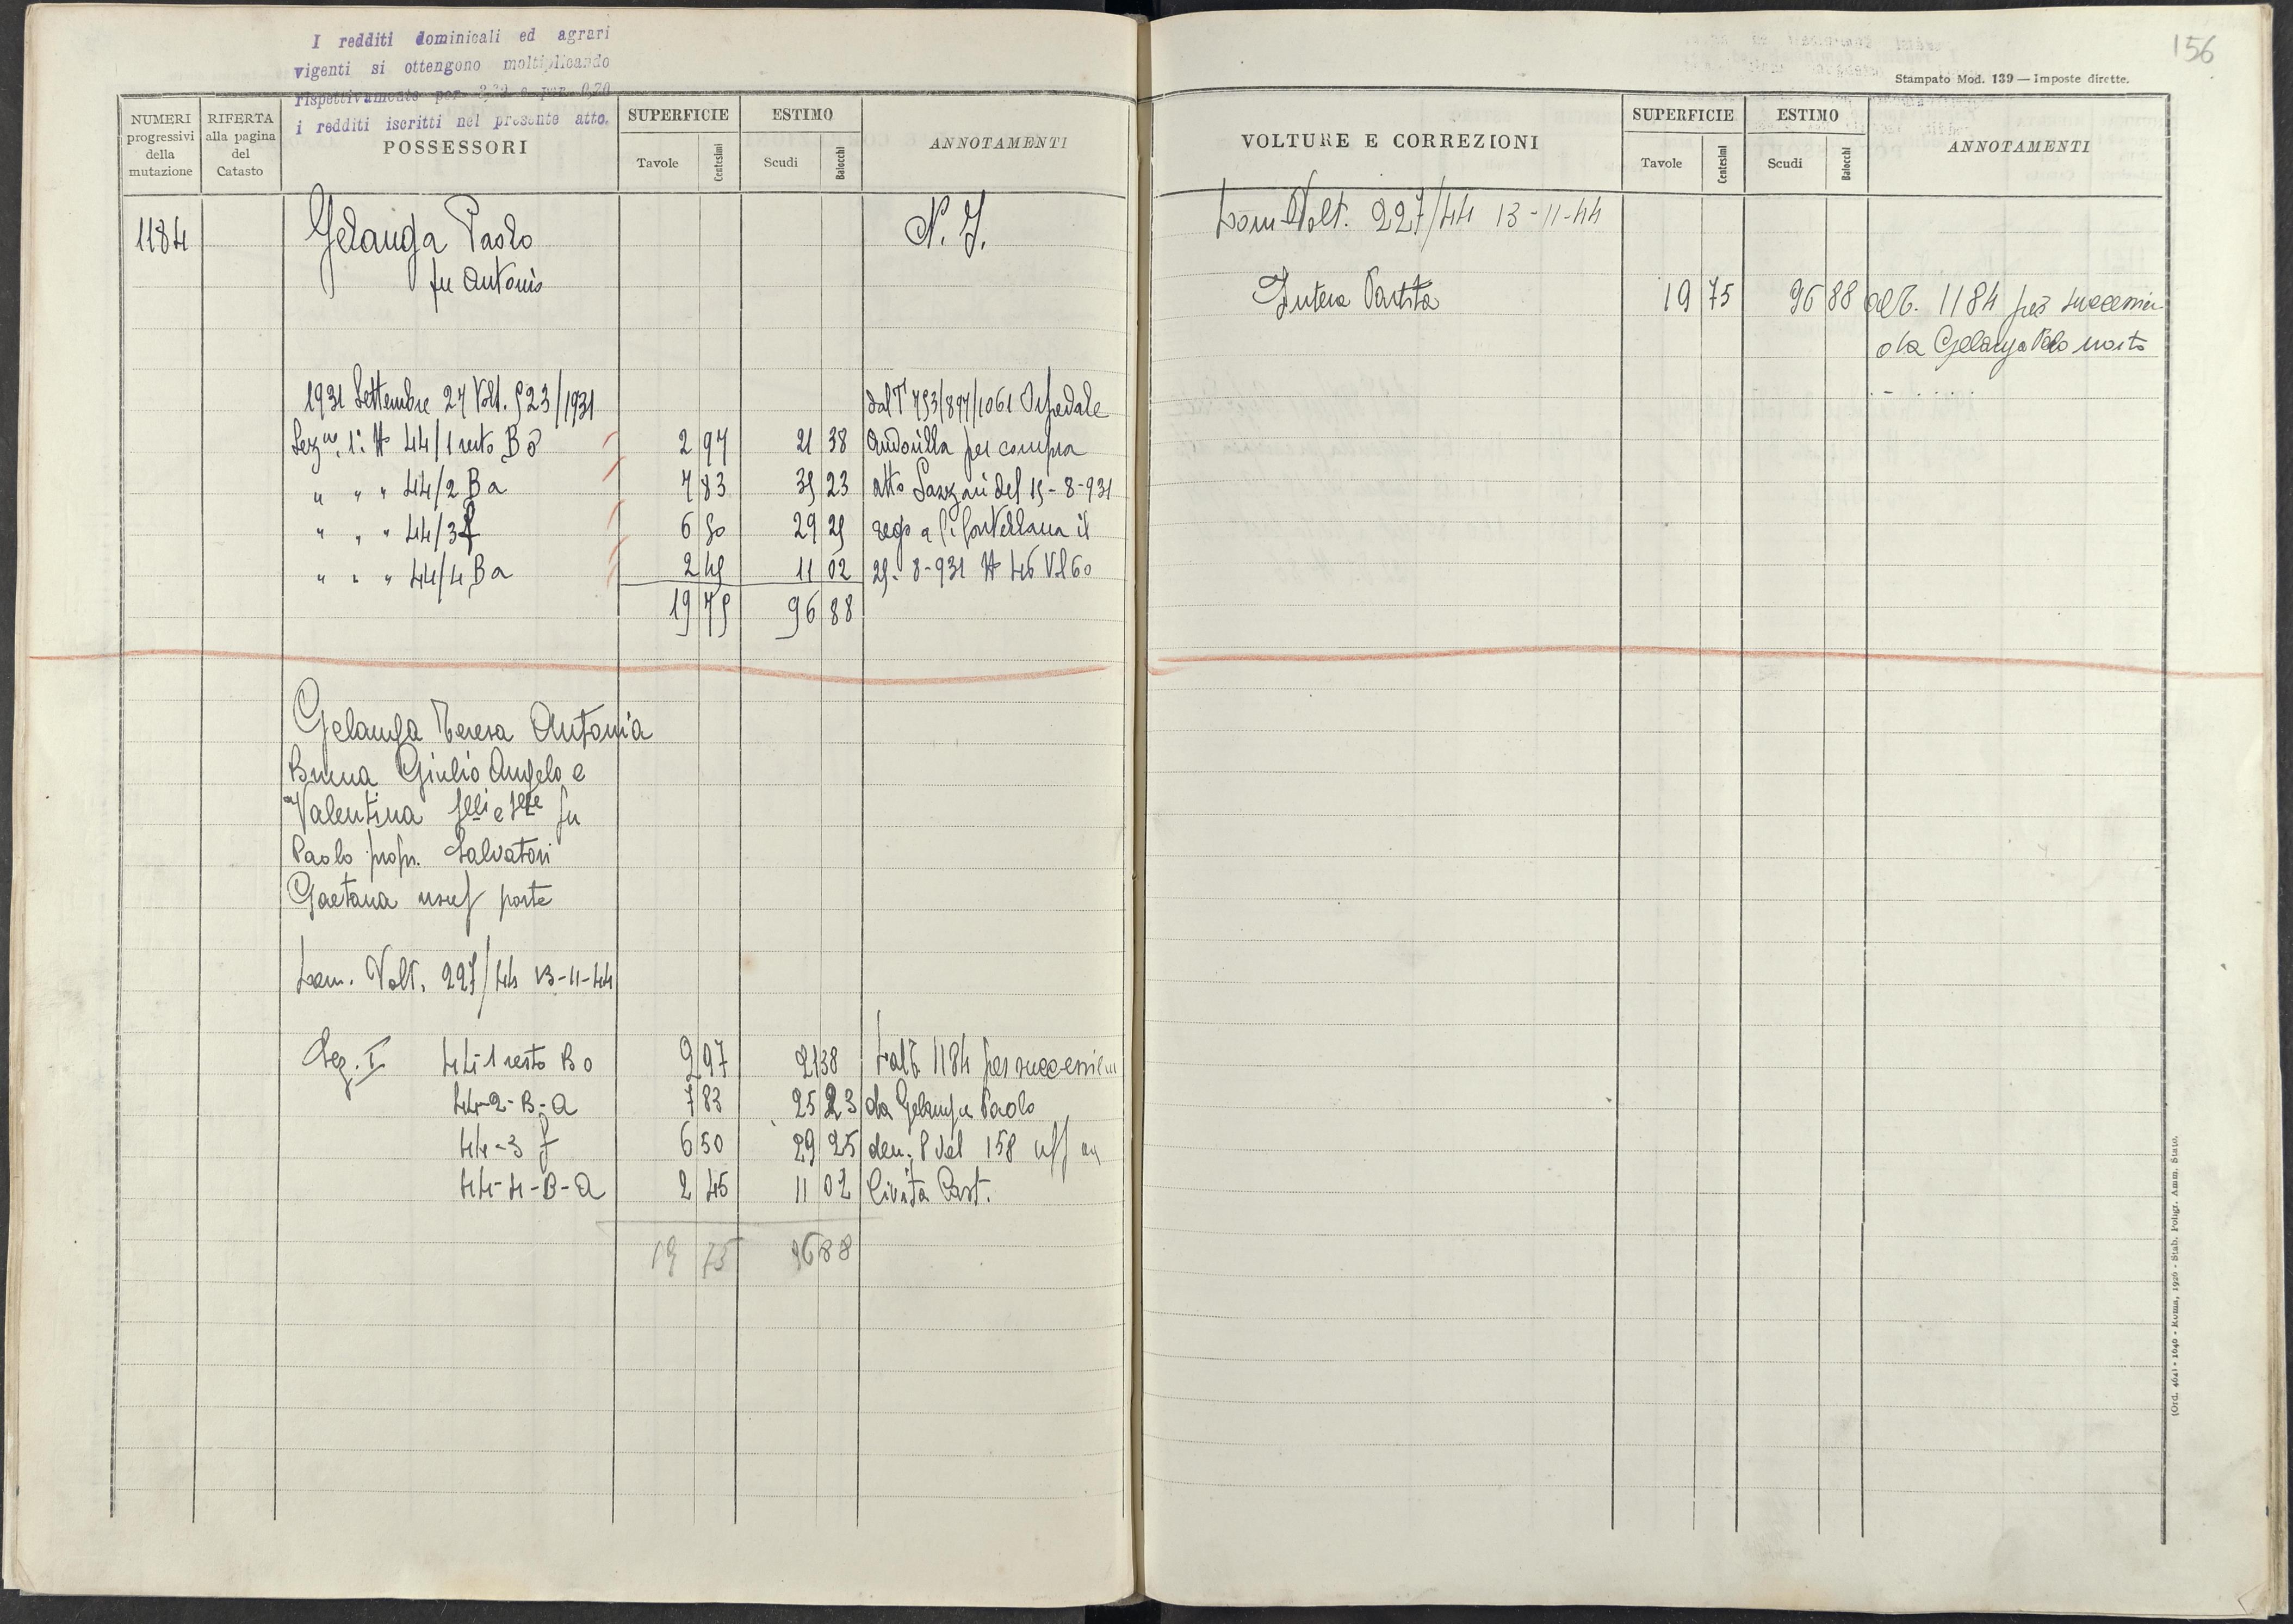 I redditi dominicali ed agrari
vigenti si ottengono moltiplicando
rispettivamente per
i redditi iscritti nel presente atto.
NUMERI progressivi della mutazione
RIFERTA alla pagina del Catasto
POSSESSORI
SUPERFICIE
Tavole Centesimi
ESTIMO
Scudi Baiocchi
ANNOTAMENTI
1184 Gelanga Paolo
fu Antonio
1931 Settembre 27 Volt. 523/1931
Sez. 1: N 44/1 resto Bo 2 97 21 38
" " " 44/2 Ba 7 83 35 23
" " " 44/3 f 6 50 29 25
" " " 44/4 Ba 2 45 11 02
19 75 96 88
N. I.
dal T 753/897/1061 Ospedale
Andosilla per compra
atto Lazzari del 15-8-931
reg a Castellana il
25-8-931 N 46 Vl 60
Gelanga Teresa Antonia
Bruna Giulio Angelo e
Valentina flli e slle fu
Paolo propr. Salvatori
Gaetana usuf parte
Dom. Volt. 227/44 13-11-44
Sez. I 44-1 resto Bo 2 97 21 38
44-2-B-A 7 83 25 23
44-3 f 6 50 29 25
44-4-B-A 2 45 11 02
19 75 96 88
Dal T. 1184 per succession
da Gelanga Paolo
den. 8 Vol 158 uff
Civita Cast.
156
Stampato Mod. 139 — Imposte dirette.
VOLTURE E CORREZIONI
SUPERFICIE
Tavole Centesimi
ESTIMO
Scudi Baiocchi
ANNOTAMENTI
Dom Volt. 227/44 13-11-44
Intera Partita 19 75 96 88 al T. 1184 per succession
da Gelanga Paolo morto
(Ord. 4641 - 1646 - Roma, 1926 - Stab. Poligr. Amm. Stato.